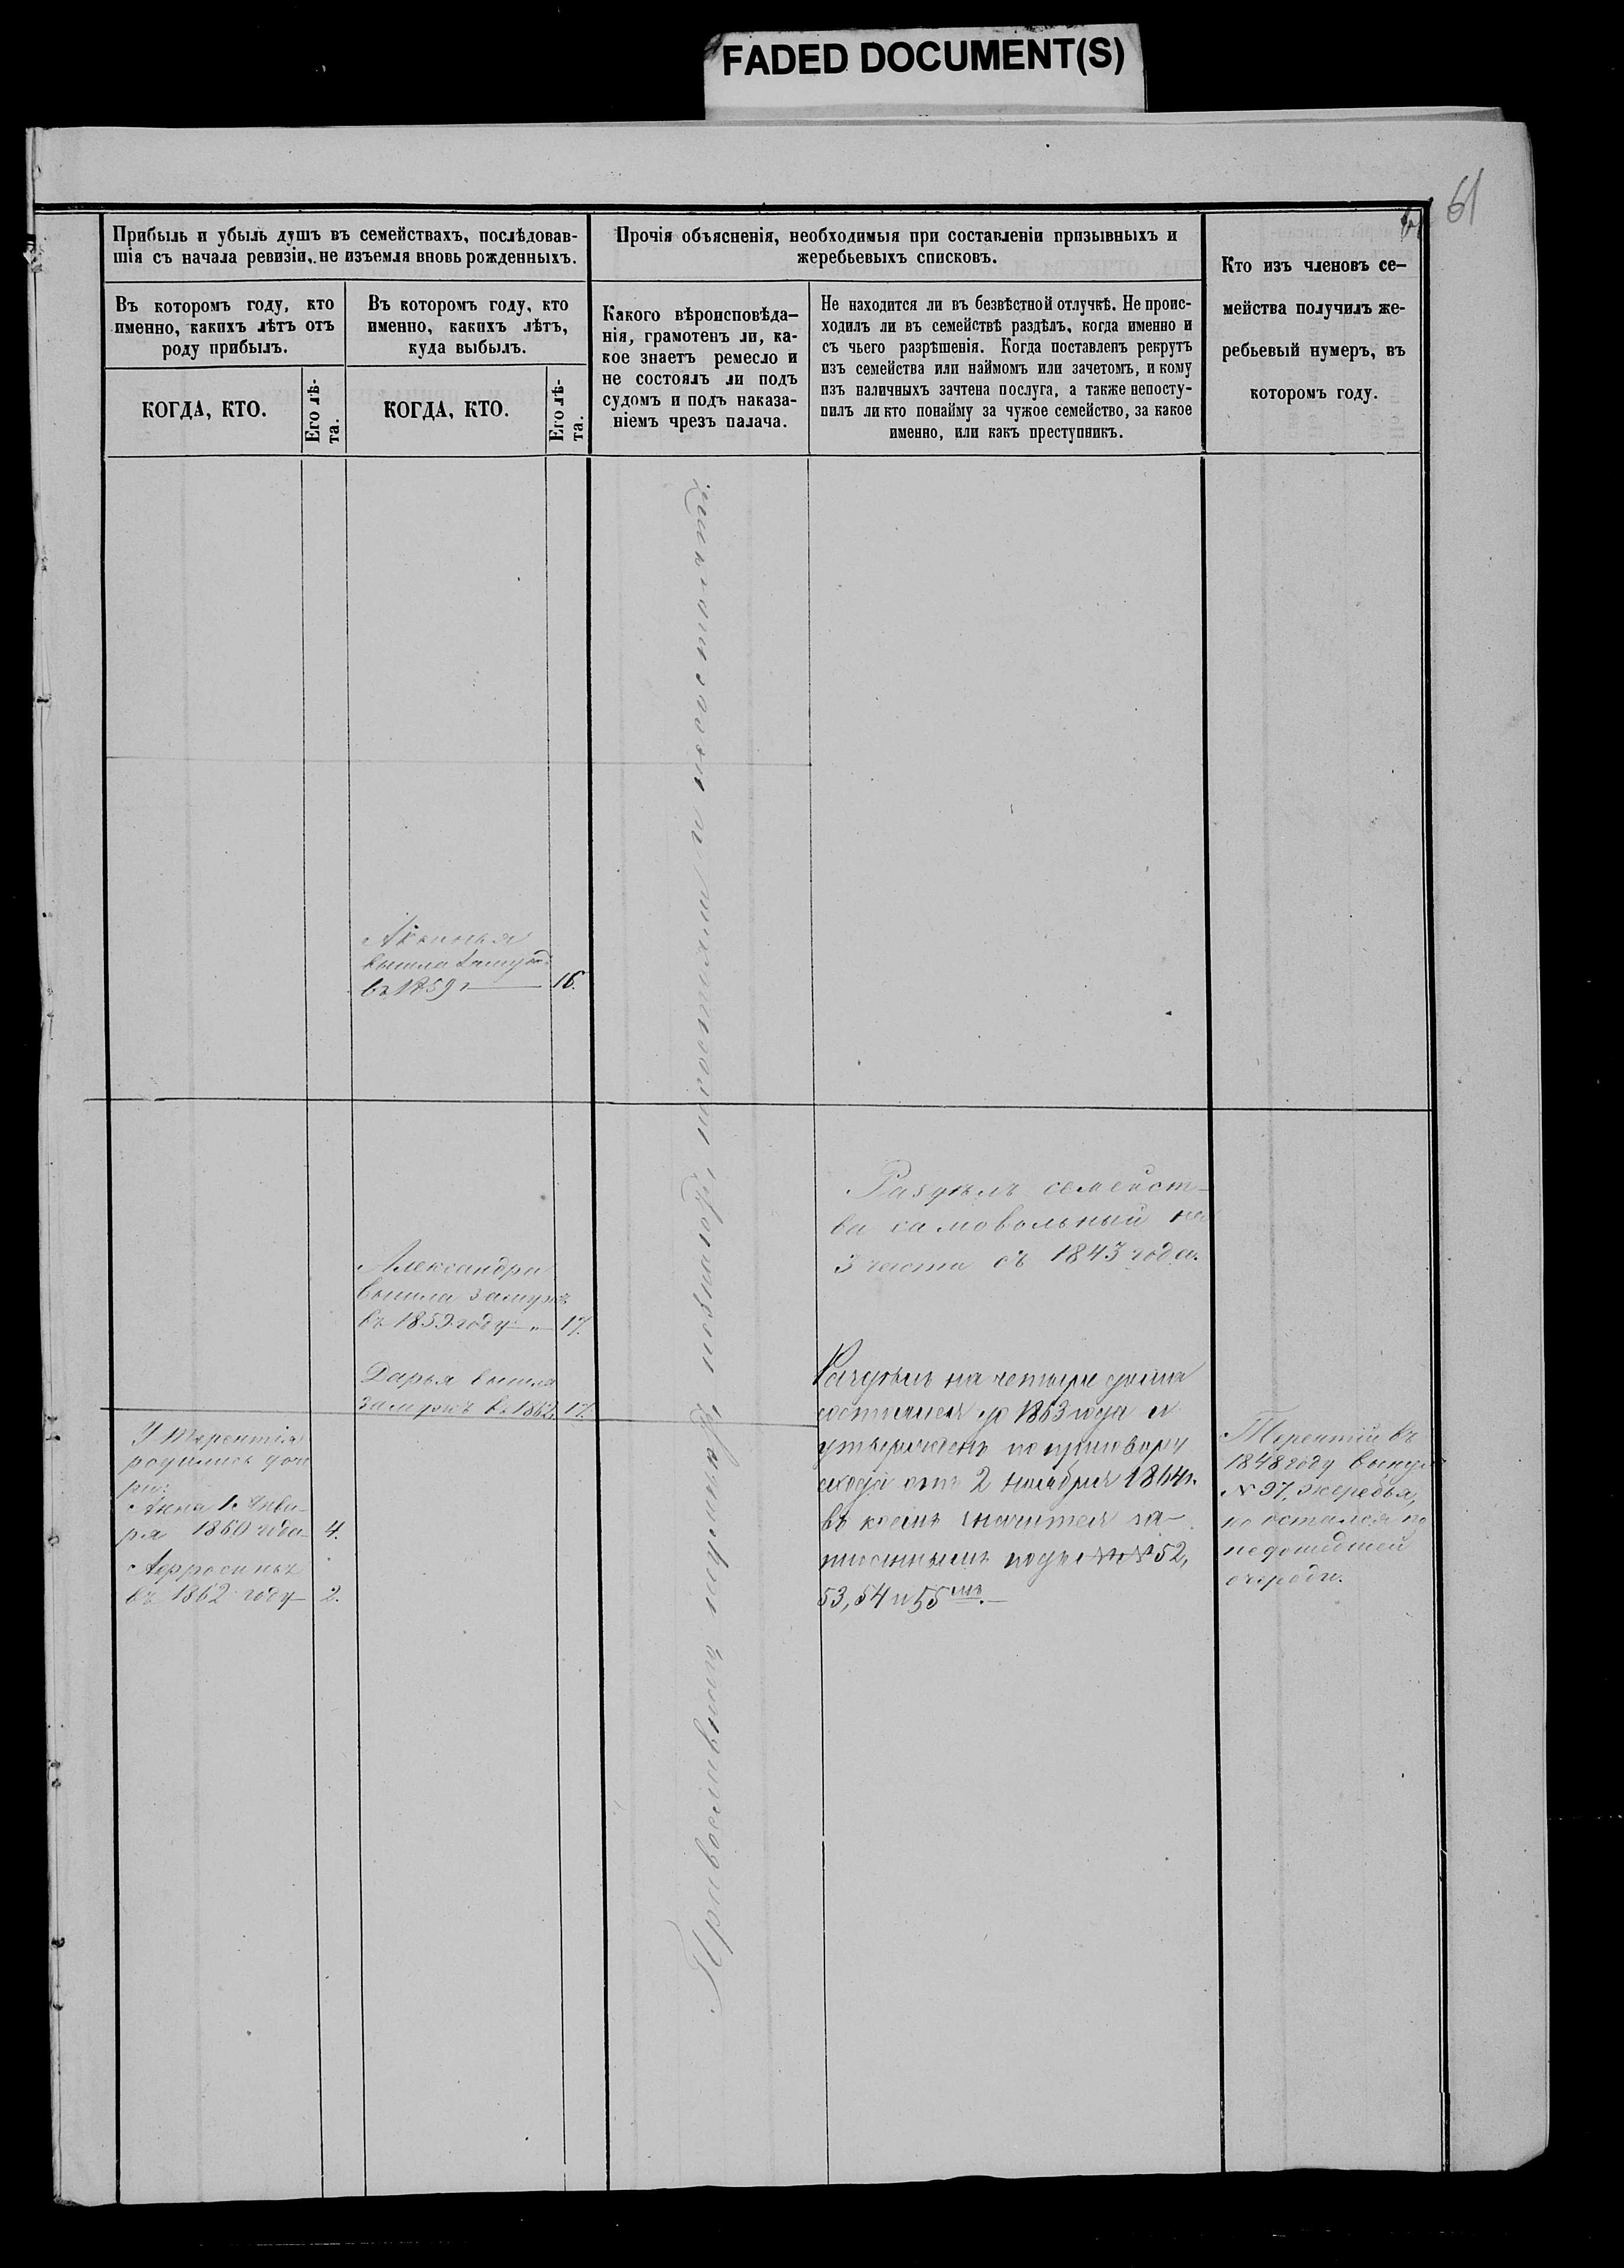 FADED DOCUMENT(S)
61
Прибыль и убыль душъ въ семействахъ, послѣдовав-
шія съ начала ревизіи, не изъемля вновь рожденныхъ.
Въ которомъ году, кто
именно, какихъ лѣтъ отъ
роду прибылъ.
КОГДА, КТО.
Его лѣ-
та.
Въ которомъ году, кто
именно, какихъ лѣтъ,
куда выбылъ.
КОГДА, КТО.
Его лѣ-
та.
Прочія объясненія, необходимыя при составленіи призывныхъ и
жеребьевыхъ списковъ.
Какого вѣроисповѣда-
нія, грамотенъ ли, ка-
кое знаетъ ремесло и
не состоялъ ли подъ
судомъ и подъ наказа-
ніемъ чрезъ палача.
Не находится ли въ безвѣстной отлучкѣ. Не проис-
ходилъ ли въ семействѣ раздѣлъ, когда именно и
съ чьего разрѣшенія. Когда поставленъ рекрутъ
изъ семейства или наймомъ или зачетомъ, и кому
изъ наличныхъ зачтена послуга, а также непосту-
пилъ ли кто понайму за чужое семейство, за какое
именно, или какъ преступникъ.
Кто изъ членовъ се-
мейства получилъ же-
ребьевый нумеръ, въ
которомъ году.
Аксинья
вышла замужъ
въ 1859 г 16.
Александра
вышла замужъ
въ 1859 году 17.
Дарья вышла
замужъ въ 1862. 17.
У Терентія
родились доч
ри:
Анна 1. Янва-
ря 1860 года 4.
Афросинья
въ 1862 году 2.
Православнаго
Раздѣлъ семейст-
ва самовольный на
3 части съ 1843 года.
Раздѣлъ на четыре дома
состоялся до 1863 года и
утвержденъ по приговору
схода отъ 2 Ноября 1864 г.
въ коемъ значится за-
подъ №№ 52,
53, 54 и 55 мъ.
Терентій въ
1848 году вынулъ
№ 97, жеребья,
но остался по
недошедшей
очереди.